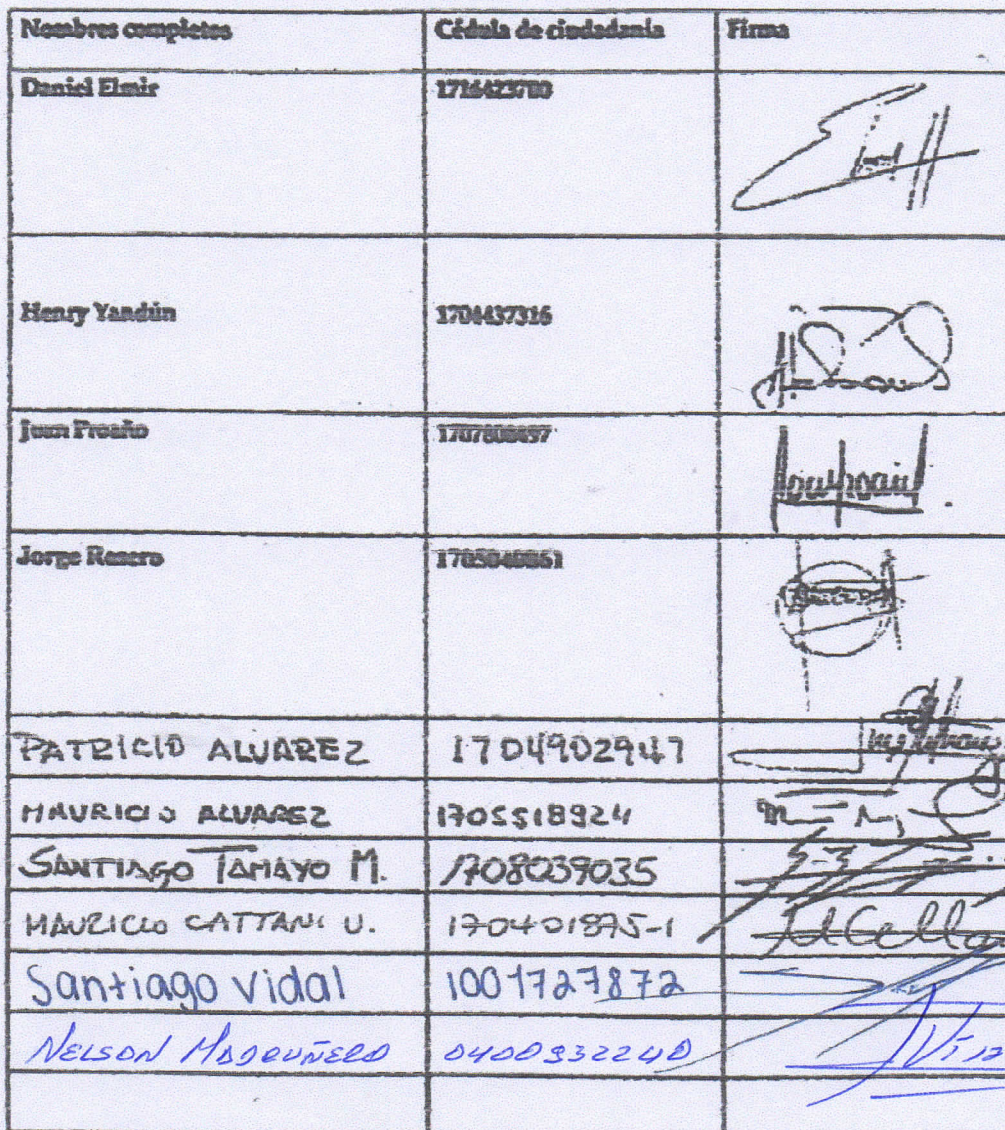 Nombres completos Cédula de ciudadanía Firma
Daniel Elmir 1716423780
Henry Yandún 1704437316
Juan Proaño
Jorge Rosero
PATRICIO ALVAREZ 1704902947
MAURICIO ALVAREZ 1705518924
SANTIAGO TAMAYO M. 1708039035
MAURICIO CATTANI U. 170401875-1
Santiago Vidal 1001727872
NELSON 0400932240